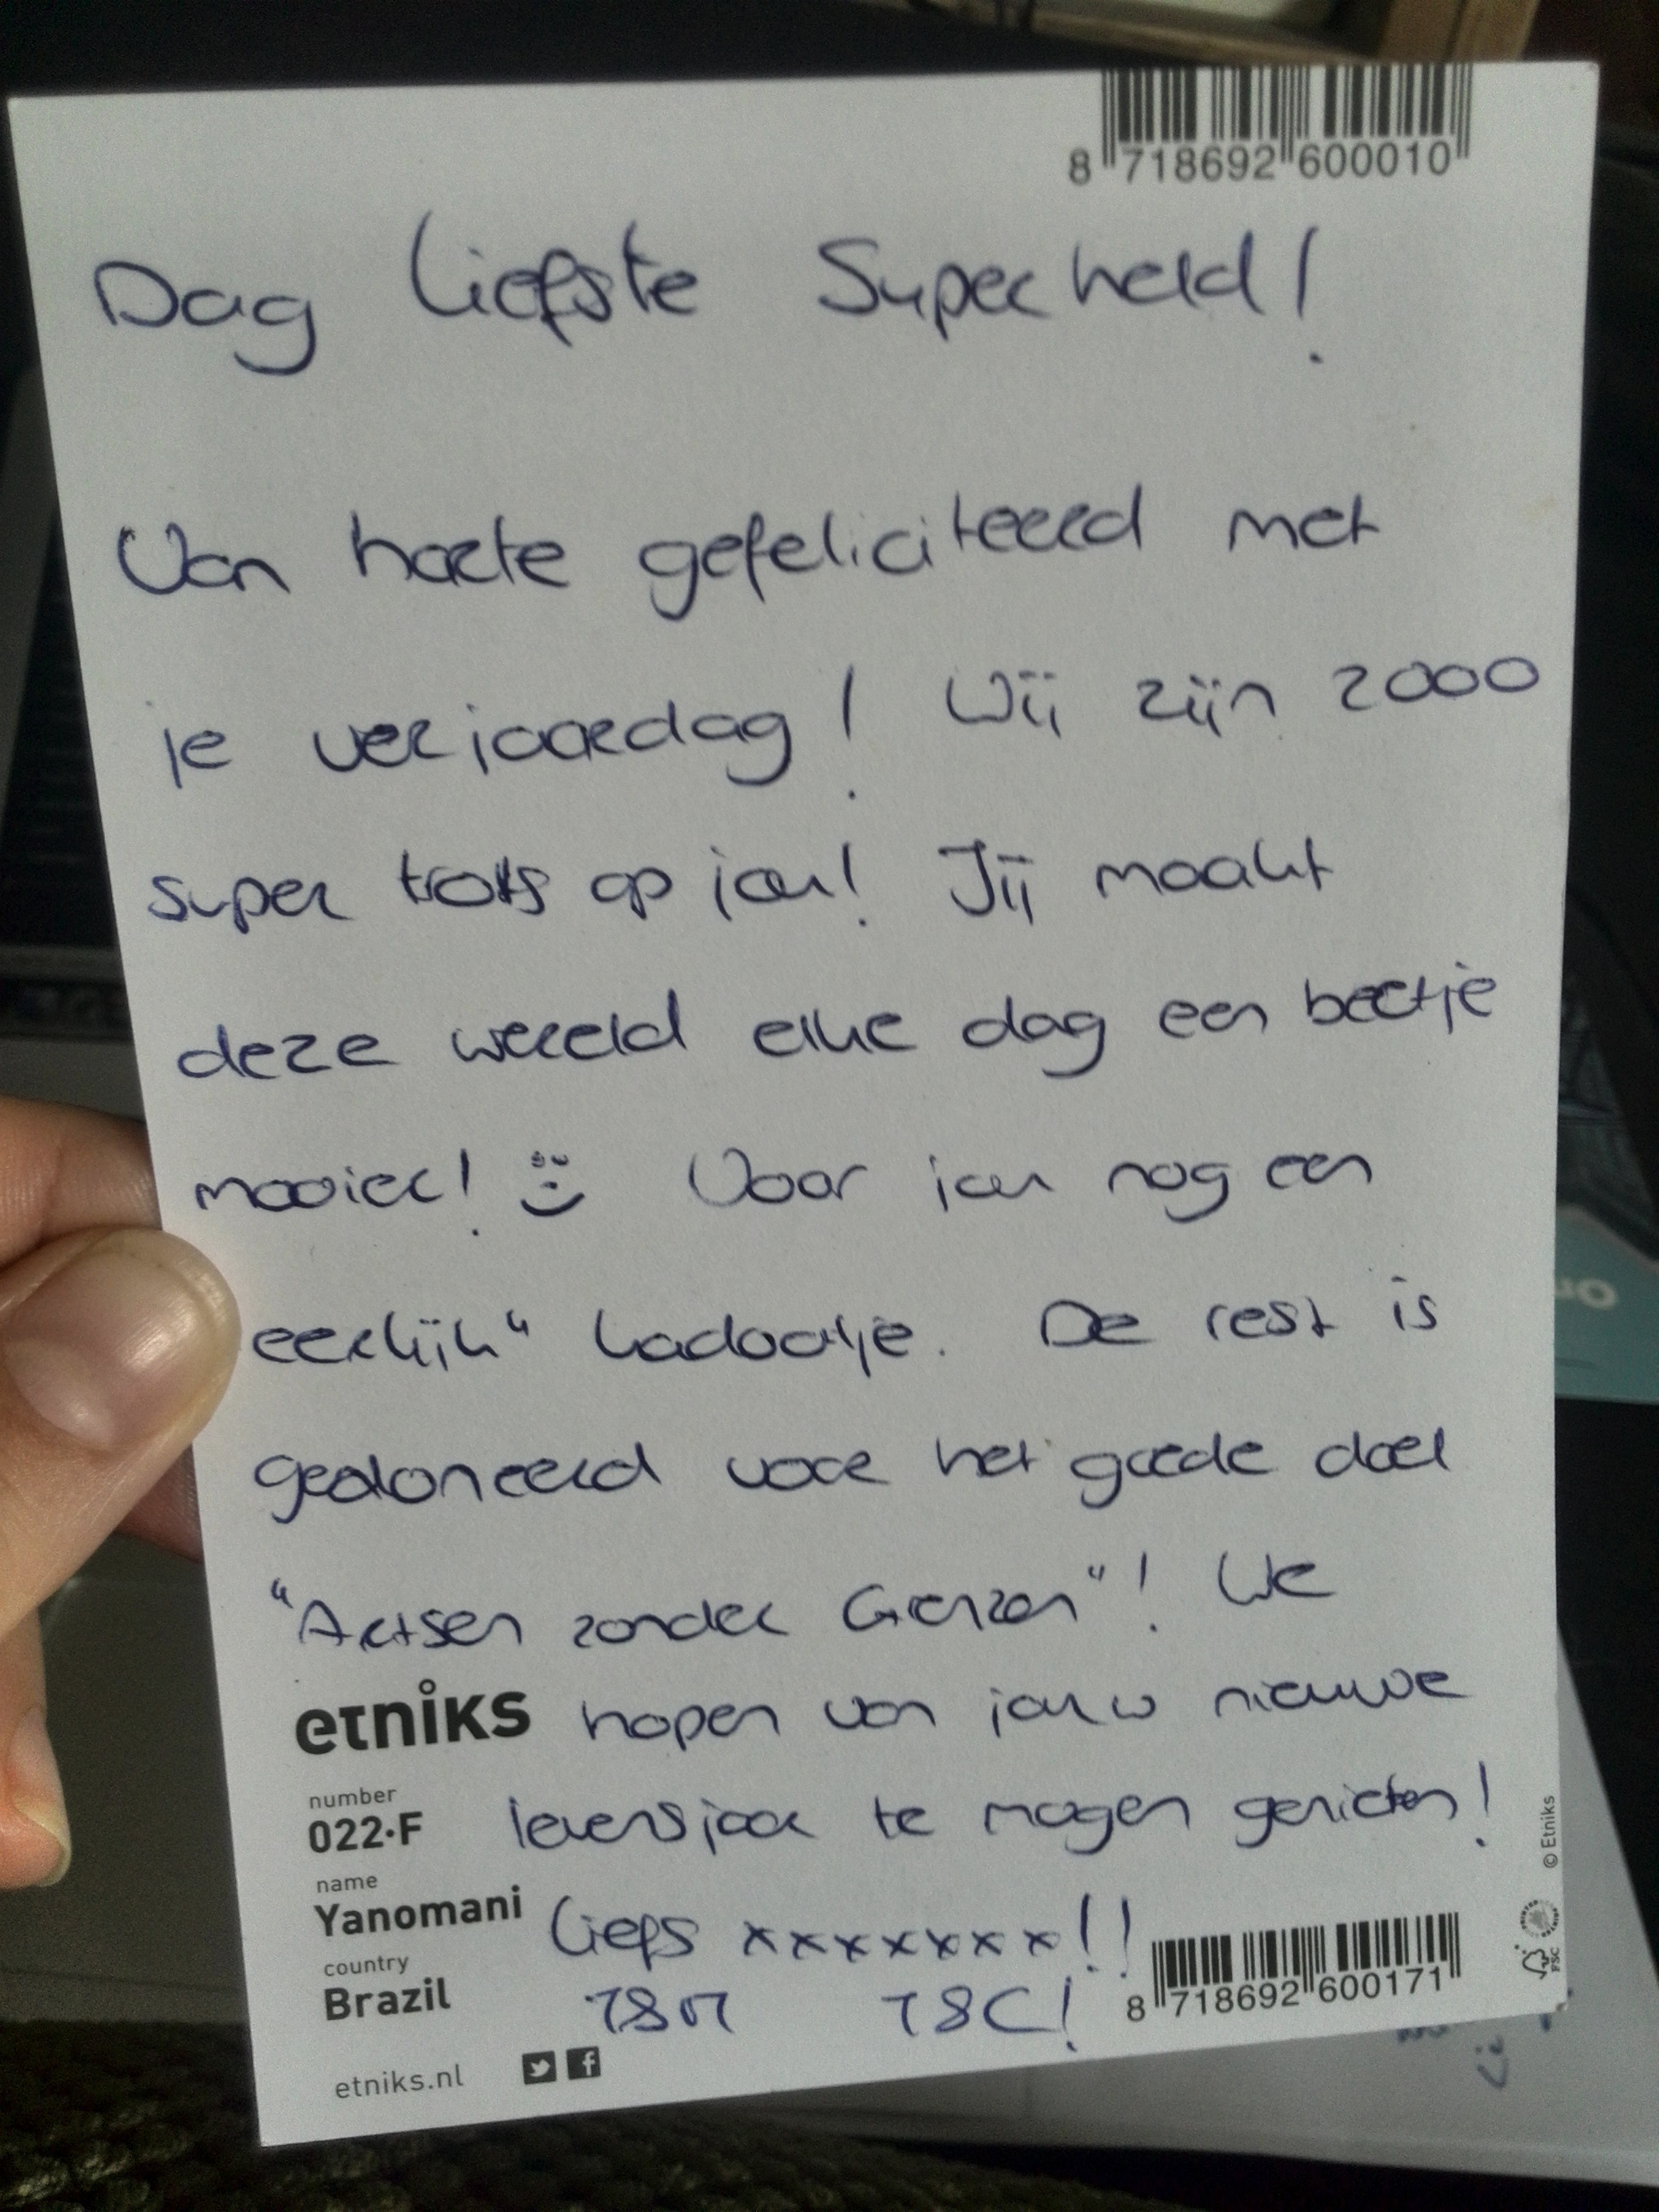 8 718692 600010
Dag liefste Superheld!
Van harte gefeliciteerd met
je verjaardag! Wij zijn zooo
super trots op jou! Jij maakt
deze wereld elke dag een beetje
mooier! :) Voor jou nog een
eerlijk" kadootje. De rest is
gedoneerd voor het goede doel
"Artsen zonder Grenzen"! We
etniks hopen van jouw nieuwe
number
022·F levensjaar te mogen genieten!
name
Yanomani Liefs xxxxxxx!!
country
Brazil T&M T&C!
8 718692 600171
etniks.nl
© Etniks
FSC